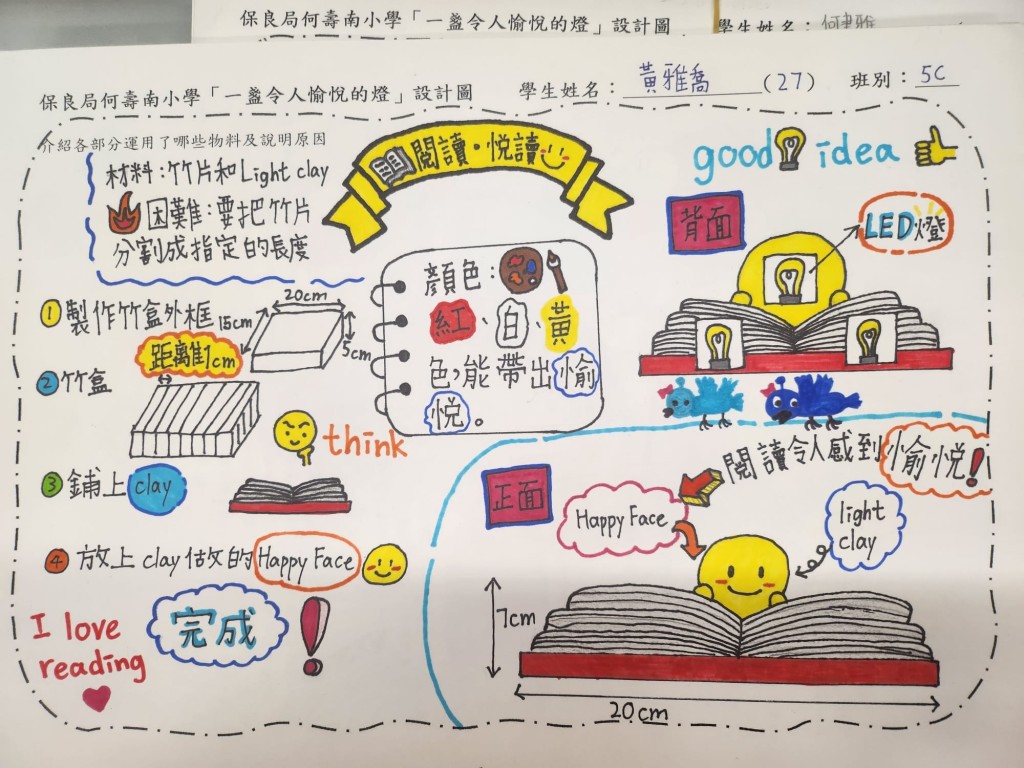 保良局何壽南小學「一盞令人愉悅的燈」設計圖 學生姓名：
保良局何壽南小學「一盞令人愉悅的燈」設計圖 學生姓名：黃雅喬（27） 班別：5C
介紹各部分運用了哪些物料及說明原因
材料：竹片和Light clay
困難：要把竹片
分割成指定的長度
閱讀·悅讀
good idea
背面
LED燈
顏色：
紅、白、黃
色，能帶出愉
悅。
① 製作竹盒外框
20cm
15cm
5cm
距離1cm
② 竹盒
think
③ 鋪上 clay
④ 放上 clay 做的 Happy Face
I love
reading
完成！
閱讀令人感到愉悅！
正面
Happy Face
light
clay
7cm
20cm